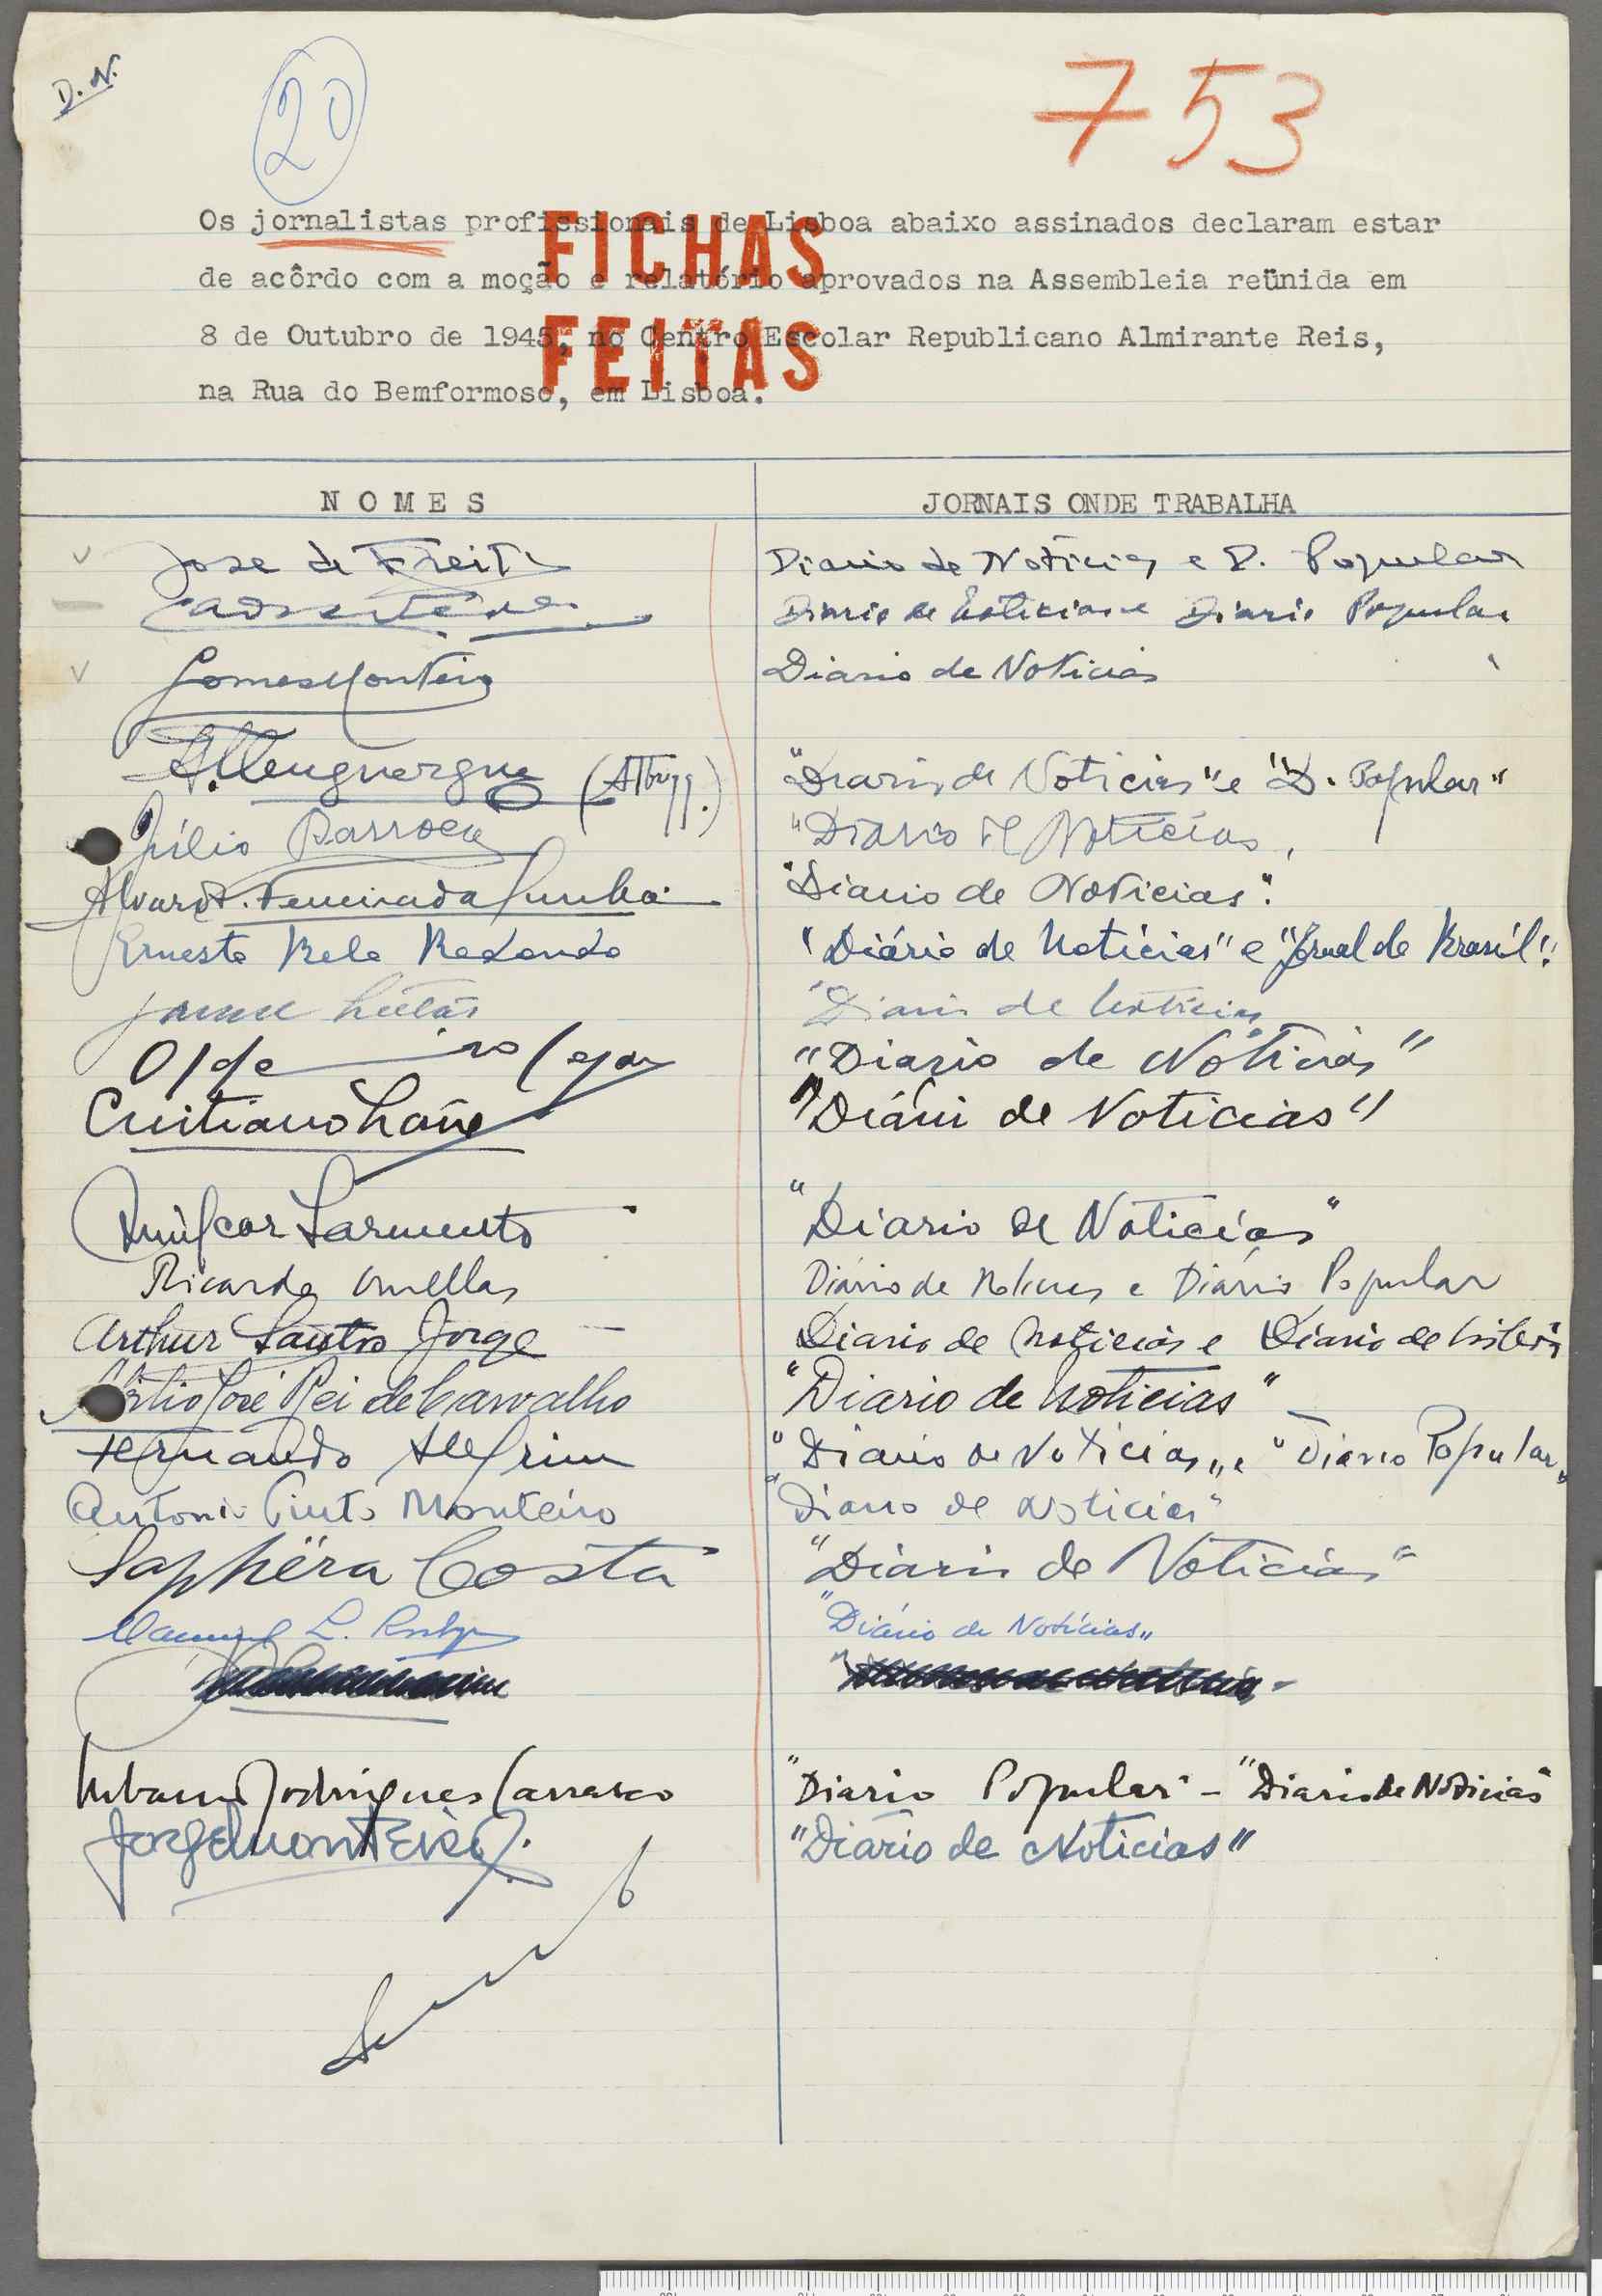 D. N.
20
753
Os jornalistas profissionais de Lisboa abaixo assinados declaram estar
de acôrdo com a moção e relatório aprovados na Assembleia reünida em
8 de Outubro de 1945, no Centro Escolar Republicano Almirante Reis,
na Rua do Bemformoso, em Lisboa.
FICHAS
FEITAS
NOMES JORNAIS ONDE TRABALHA
José de Freitas Diario de Noticias e D. Popular
Diario de Noticias e Diario Popular
Gomes Monteiro Diario de Noticias
"Diario de Noticias" e "D. Popular"
Júlio Barroca "Diario de Noticias,
Alvaro Ferreira da Cunha "Diario de Noticias".
Ernesto Belo Redondo "Diário de Notícias" e "Jornal do Brasil".
Diario de Noticias
"Diario de Noticias"
Cristiano "Diário de Noticias"
Amilcar Sarmento "Diario de Noticias"
Ricardo Ornellas Diário de Noticias e Diário Popular
Arthur Santos Jorge Diario de Noticias e Diario de Lisboa
José Rei de Carvalho "Diario de Noticias"
Fernando Alegrim "Diario de Noticias„ e "Diario Popular„
Antonio Pinto Monteiro "Diario de Noticias"
Saphëra Costa "Diario de Noticias"
Manuel L. "Diário de Notícias„
Urbano Rodrigues Carrasco "Diario Popular" - "Diario de Noticias"
Jorge Monteiro "Diario de Noticias"